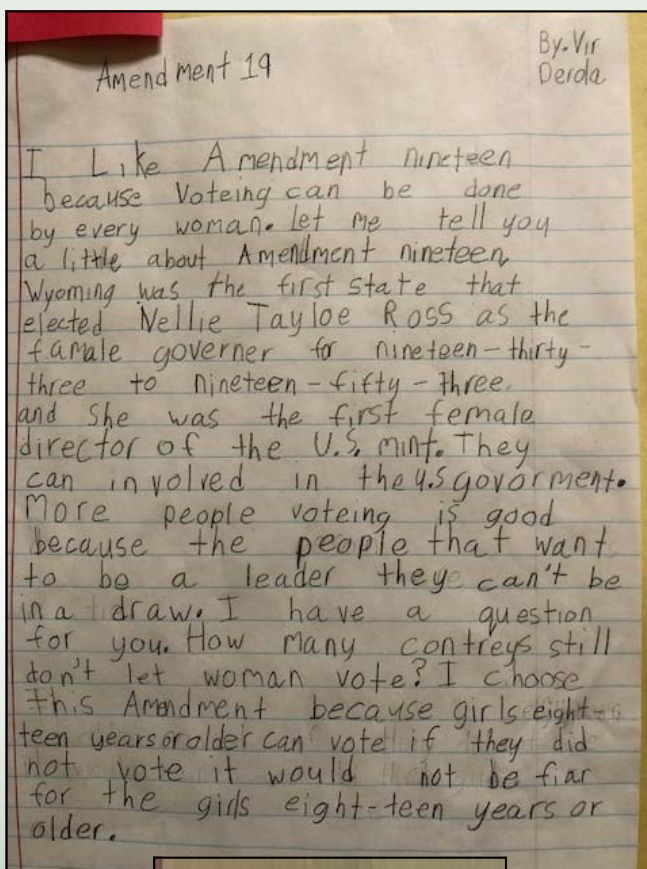 Amendment 19
By. Vir
Derola
I Like Amendment nineteen
because Voteing can be done
by every woman. let me tell you
a little about Amendment nineteen,
Wyoming was the first state that
elected Nellie Tayloe Ross as the
famale governer for nineteen-thirty-
three to nineteen-fifty-three.
and She was the first female
director of the U.S. mint. They
can involved in the u.s govorment.
More people voteing is good
because the people that want
to be a leader they can't be
in a draw. I have a question
for you. How many contreys still
don't let woman vote? I choose
this Amendment because girls eight-
teen years or older can vote if they did
not vote it would not be fiar
for the girls eight-teen years or
older.